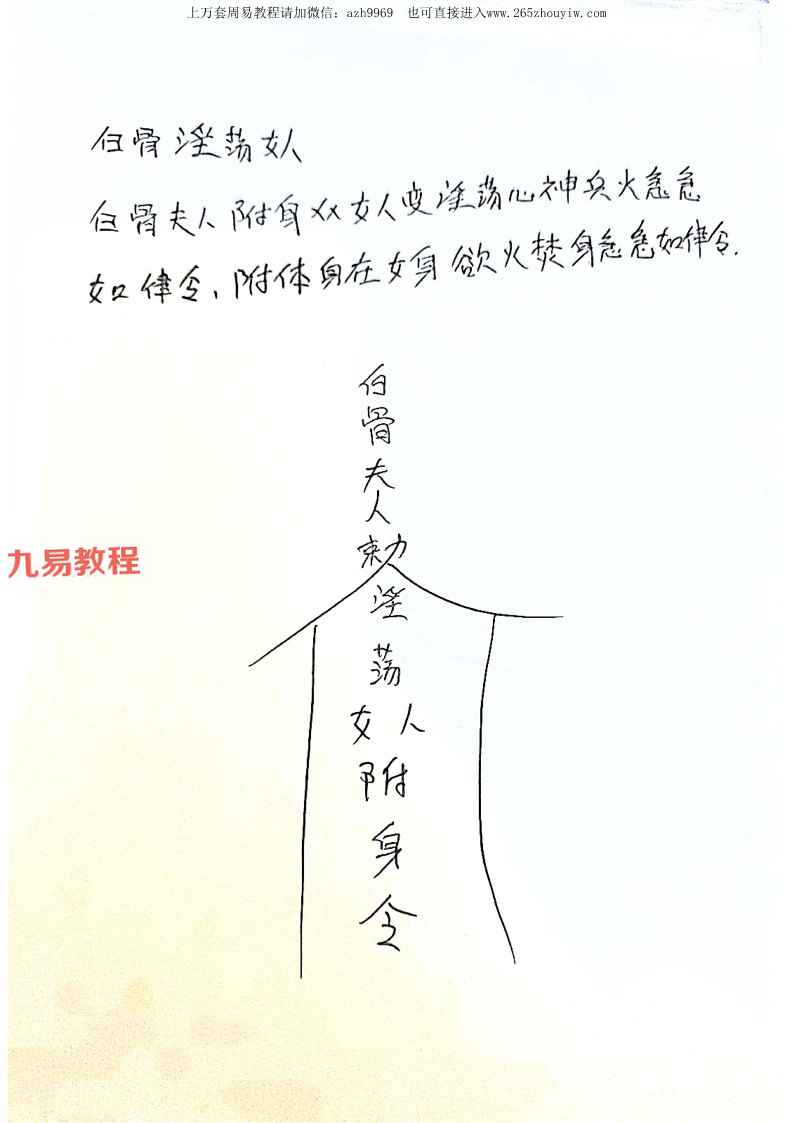 上万套周易教程请加微信：azh9969 也可直接进入www.265zhouyiw.com
白骨淫荡女人
白骨夫人附身XX女人变淫荡心神兵火急急
如律令、附体身在女身欲火焚身急急如律令.
白
骨
夫
人
勅
九易教程
淫
荡
女人
附
身
令